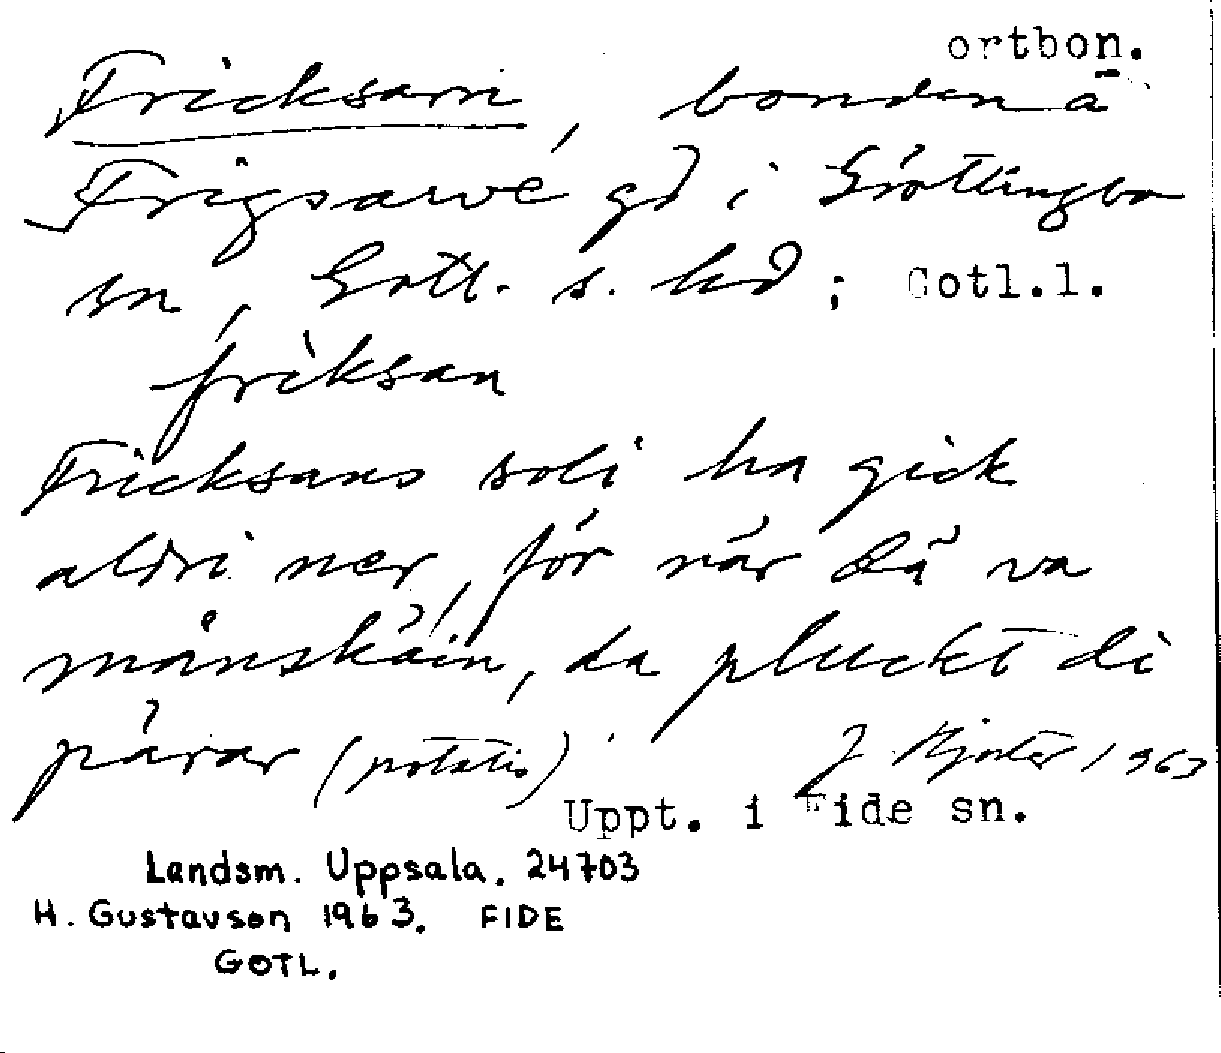 ortbon.
Fricksarn, bonden å
Frigsarve gd i Gröttlingbo
sn, Gotl. s. hd; Gotl.l.
friksan
Fricksans soli ha gick
aldri ner, för när dä va
månskäin, da pluckt di
pärar (potatis). J. Kjoler 1963
Uppt. i Fide sn.
Landsm. Uppsala. 24703
H. Gustavson 1963. FIDE
GOTL.